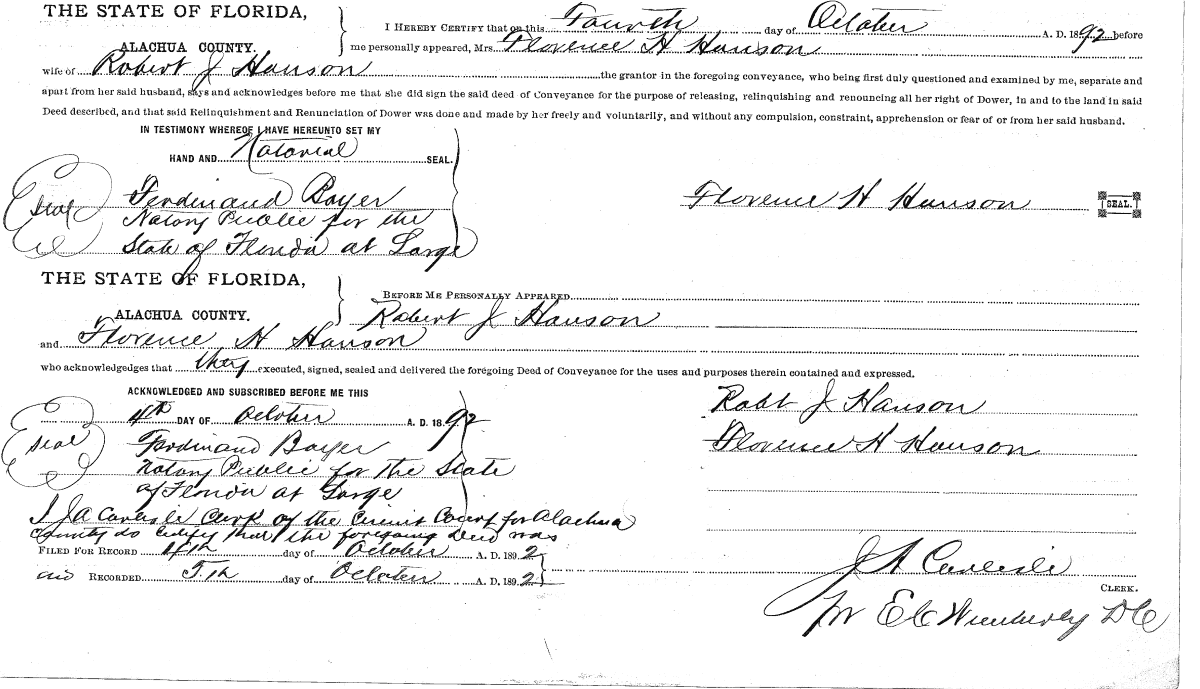 THE STATE OF FLORIDA,
ALACHUA COUNTY.
I HEREBY CERTIFY that on this Fourth day of October A. D. 1892 before
me personally appeared, Mrs. Florence H Hanson
wife of Robert J Hanson the grantor in the foregoing conveyance, who being first duly questioned and examined by me, separate and
apart from her said husband, says and acknowledges before me that she did sign the said deed of Conveyance for the purpose of releasing, relinquishing and renouncing all her right of Dower, in and to the land in said
Deed described, and that said Relinquishment and Renunciation of Dower was done and made by her freely and voluntarily, and without any compulsion, constraint, apprehension or fear of or from her said husband.
IN TESTIMONY WHEREOF I HAVE HEREUNTO SET MY
HAND AND Notarial SEAL.
Seal Ferdinand Bayer
Florence H Hanson SEAL.
Notary Public for the
State of Florida at Large
THE STATE OF FLORIDA,
ALACHUA COUNTY.
BEFORE ME PERSONALLY APPEARED
Robert J Hanson
and Florence H Hanson
who acknowledges that they executed, signed, sealed and delivered the foregoing Deed of Conveyance for the uses and purposes therein contained and expressed.
ACKNOWLEDGED AND SUBSCRIBED BEFORE ME THIS
4th DAY OF October A. D. 1892
Robt J Hanson
Seal Ferdinand Bayer
Florence H Hanson
Notary Public for the State
of Florida at Large
I J A Carlisle Clerk of the Circuit Court for Alachua
County do certify that the foregoing deed was
FILED FOR RECORD 4th day of October A. D. 1892
and RECORDED 5th day of October A. D. 1892
J A Carlisle
CLERK.
Pr E C Wimberly D C